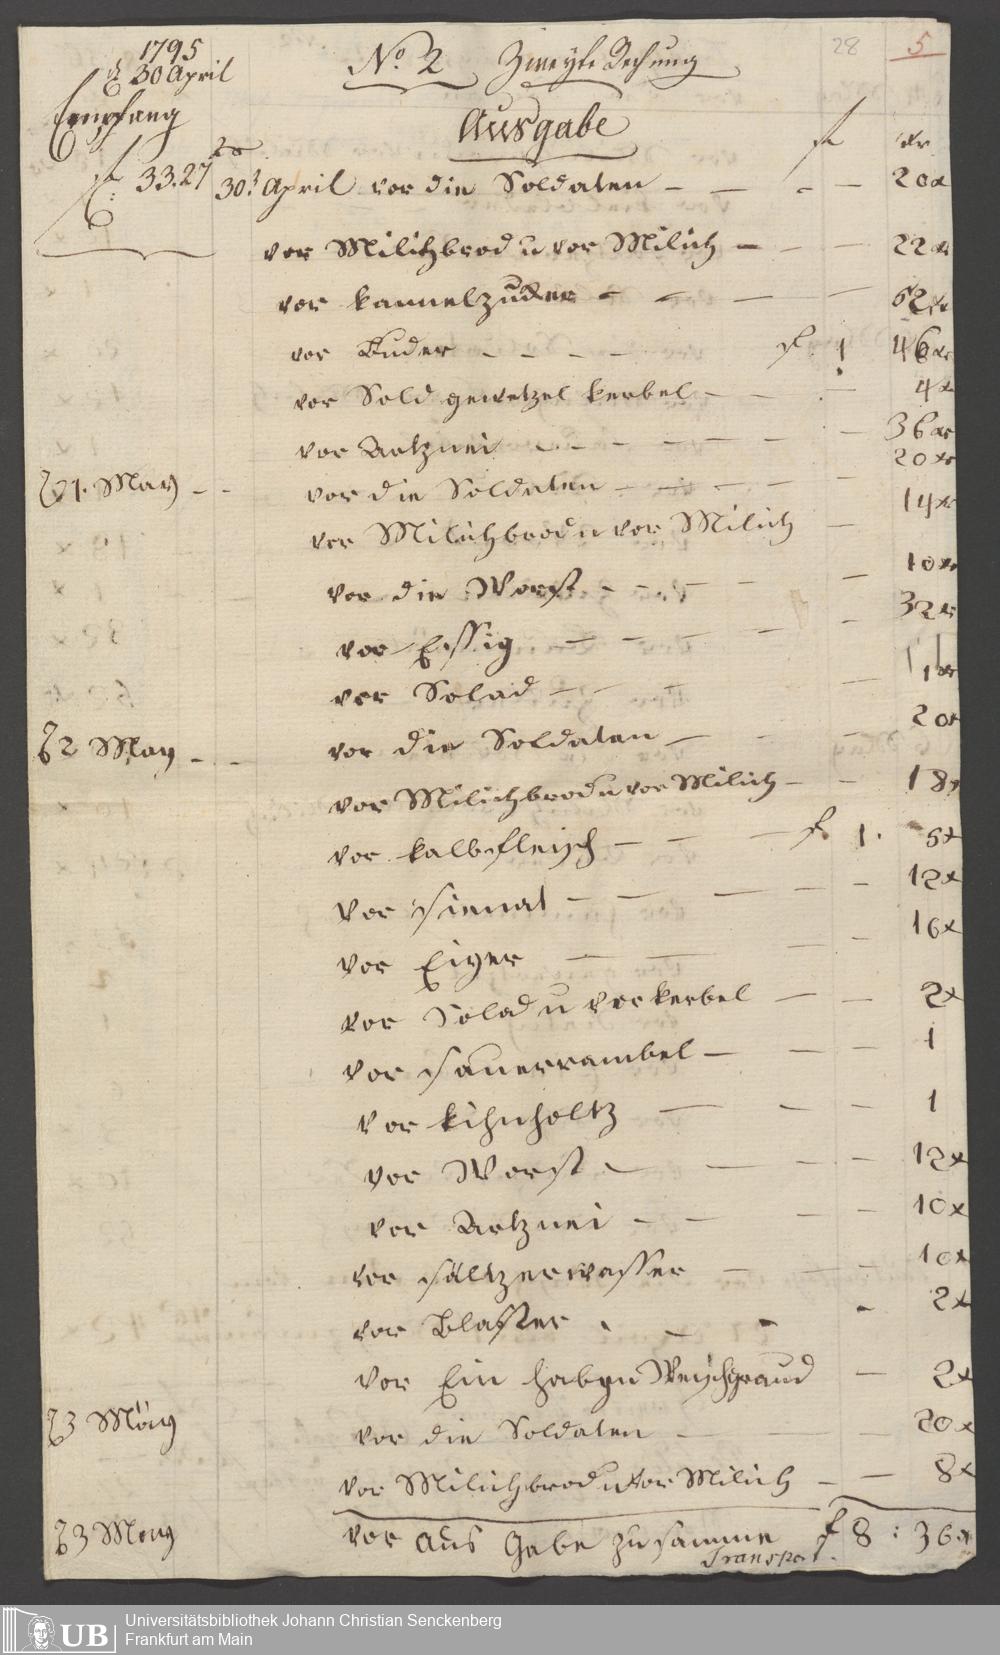 1795
d 30 April
Empfang
f: 33.27
28
5
No. 2 Zweyte Rechnung
Ausgabe
f xr
30t April vor die Soldaten - - - - 20x
vor Milichbrod u vor Milich - - - 22xr
vor kannelzucker - - - - 52xr
vor Buder - - - - f. 1 46xr
vor Sold gewetzel kerbel - - - 4x
vor Artznei - - - - - - 36xr
d 1. May - - vor die Soldaten - - - - - 20xr
vor Milichbrod u vor Milich - 14xr
vor die Worst - - - - - 10xr
vor Essig - - - - - 32xr
vor Solad - - - - 1xr
d 2 May - - vor die Soldaten - - - 20x
vor Milichbrod u vor Milich - - 18x
vor kalbfleisch - - - f. 1. 5x
vor - - - - - 12x
vor Eiyer - - - - 16x
vor Solad u vor kerbel - - 2x
vor sauerrambel - - - 1
vor kihnholtz - - - 1
vor Worst - - - - 12x
vor Artznei - - - - 10x
vor sältzerwasser - - - 10x
vor Blaster - - - - 2x
vor Ein - 2x
d 3 May vor die Soldaten - - - 20x
vor Milichbrod u vor Milich - - 8x
d 3 May vor Aus Gabe zusamme f 8 : 36x
Transport.
UB Universitätsbibliothek Johann Christian Senckenberg
Frankfurt am Main